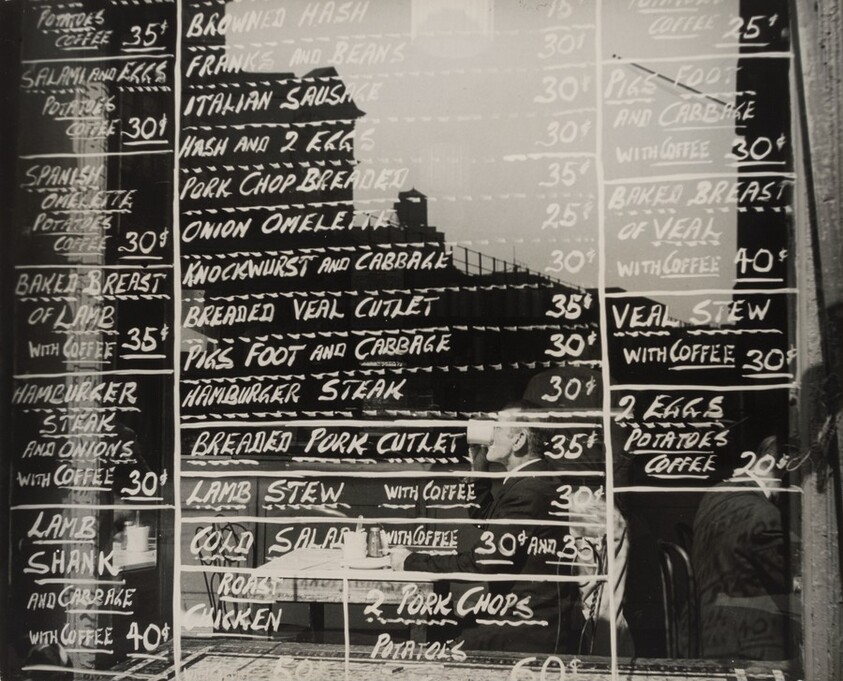 POTATOES
COFFEE 35¢
SALAMI AND EGGS
POTATOES
COFFEE 30¢
SPANISH
OMELETTE
POTATOES
COFFEE 30¢
BAKED BREAST
OF LAMB
WITH COFFEE 35¢
HAMBURGER
STEAK
AND ONIONS
WITH COFFEE 30¢
LAMB
SHANK
AND CABBAGE
WITH COFFEE 40¢
BROWNED HASH
FRANKS AND BEANS 30¢
ITALIAN SAUSAGE 30¢
HASH AND 2 EGGS 30¢
PORK CHOP BREADED 35¢
ONION OMELETTE 25¢
KNOCKWURST AND CABBAGE 30¢
BREADED VEAL CUTLET 35¢
PIGS FOOT AND CABBAGE 30¢
HAMBURGER STEAK 30¢
BREADED PORK CUTLET 35¢
LAMB STEW WITH COFFEE 30¢
COLD SALAD WITH COFFEE 30¢ AND
ROAST
CHICKEN
2 PORK CHOPS
POTATOES
60¢
POTATOES
COFFEE 25¢
PIGS FOOT
AND CABBAGE
WITH COFFEE 30¢
BAKED BREAST
OF VEAL
WITH COFFEE 40¢
VEAL STEW
WITH COFFEE 30¢
2 EGGS
POTATOES
COFFEE 20¢